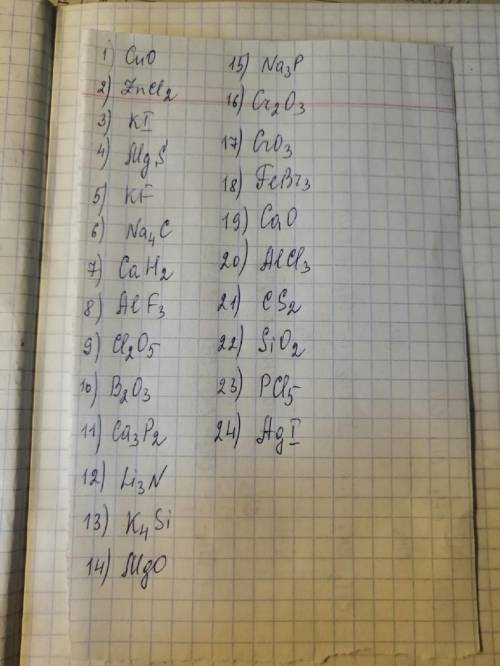 1) CuO
2) ZnCl2
3) KI
4) MgS
5) KF
6) Na4C
7) CaH2
8) AlF3
9) Cl2O5
10) B2O3
11) Ca3P2
12) Li3N
13) K4Si
14) MgO
15) Na3P
16) Cr2O3
17) CrO3
18) FeBr3
19) CaO
20) AlCl3
21) CS2
22) SiO2
23) PCl5
24) AgI